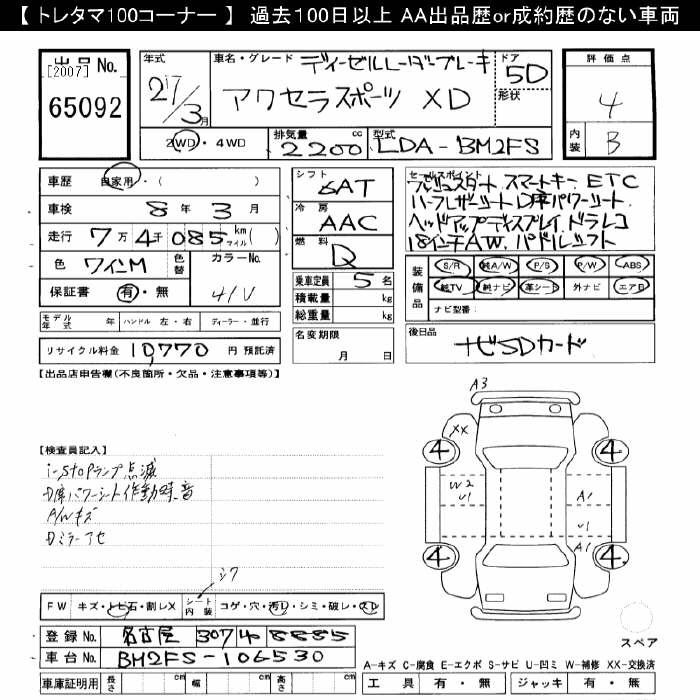 【 トレタマ100コーナー 】 過去100日以上 AA出品歴or成約歴のない車両
出品 No.
[2007]
65092
年式
27/3月
車名・グレード ディーゼルレーダーブレーキ
アクセラスポーツ XD
ドア
5D
形状
評価点
4
内装 B
2WD・4WD
排気量 2200 cc
型式 LDA-BM2FS
車歴 自家用・( )
車検 8年 3月
走行 7万 4千 085 km マイル( )
色 ワインM 色替 カラーNo.
保証書 有・無 41V
モデル年式 年 ハンドル 左・右 ディーラー・並行
リサイクル料金 10,770 円 預託済
シフト 6AT
冷房 AAC
燃料 D
乗車定員 5 名
積載量 kg
総重量 kg
名変期限
月 日
セールスポイント
プッシュスタート. スマートキー. ETC
ハーフレザーシート D席パワーシート.
ヘッドアップディスプレイ. ドラレコ
18インチAW. パドルシフト
装備品
S/R 純A/W P/S P/W ABS
純TV 純ナビ 革シート 外ナビ エアB
ナビ型番:
後日品
ナビSDカード
【出品店申告欄(不良箇所・欠品・注意事項等)】
【検査員記入】
i-stopランプ点滅
D席パワーシート作動時音
A/Wキズ
Dミラーアセ
シワ
FW キズ・トビ石・割レX シート内装 コゲ・穴・汚レ・シミ・破レ・スレ
登録 No. 名古屋 307 4 8885
車台 No. BM2FS-106530
車庫証明用 長さ cm 幅 cm 高さ cm
A3
XX
4
4
W2
U1
A1
U1
A1
4
4
スペア
A-キズ C-腐食 E-エクボ S-サビ U-凹ミ W-補修 XX-交換済
工具 有・無 ジャッキ 有・無